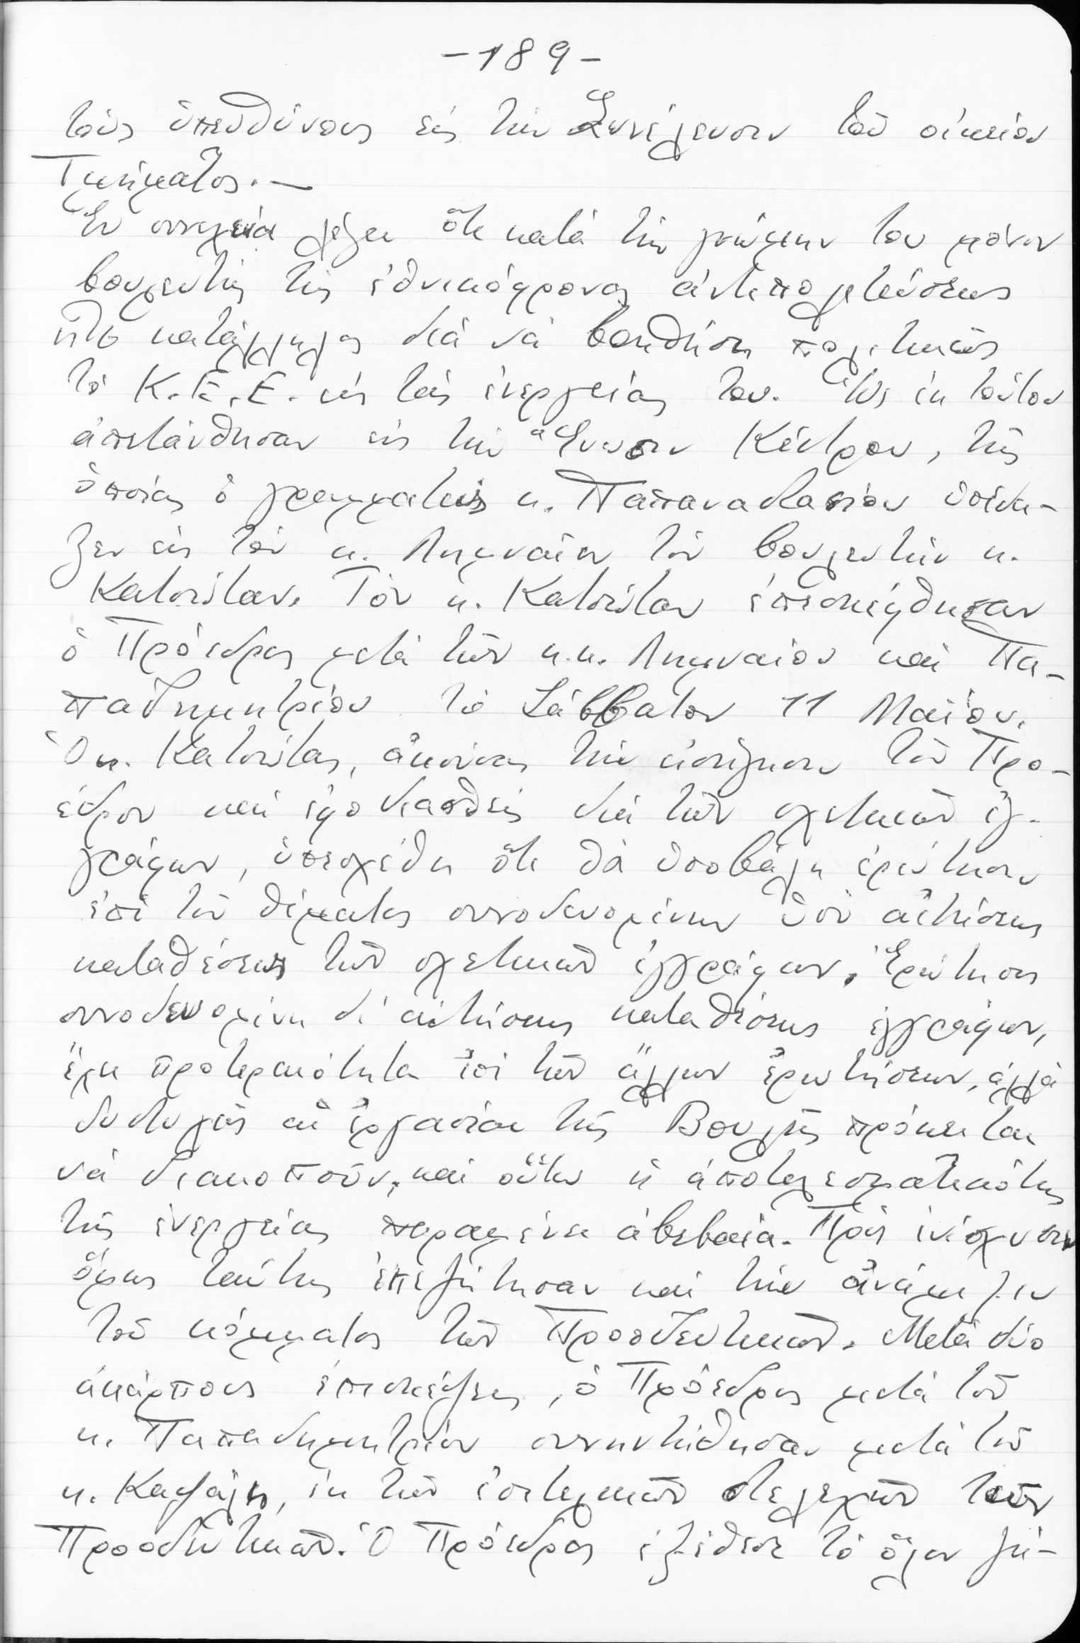 -189-
τούς ὑπευθύνους εἰς τήν Συνέλευσιν τοῦ οἰκείου
Τμήματος.—
Ἐν συνεχείᾳ λέγει ὅτι κατά τήν γνώμην του μόνον
βουλευτής τῆς ἐθνικόφρονος ἀντιπολιτεύσεως
ἦτο κατάλληλος διά νά βοηθήσῃ πολιτικῶς
τό Κ.Ε.Ε. εἰς τάς ἐνεργείας του. Ὡς ἐκ τούτου
ἀπετάνθησαν εἰς τήν Ἕνωσιν Κέντρου, τῆς
ὁποίας ὁ γραμματεύς κ. Παπαναστασίου ὑπέδει-
ξεν εἰς τόν κ. Λημναῖον τόν βουλευτήν κ.
Κατσώταν. Τόν κ. Κατσώταν ἐπεσκέφθησαν
ὁ Πρόεδρος μετά τῶν κ.κ. Λημναίου καί Πα-
παδημητρίου τό Σάββατον 11 Μαΐου.
Ὁ κ. Κατσώτας, ἀκούσας τήν εἰσήγησιν τοῦ Προ-
έδρου καί ἐφοδιασθείς διά τῶν σχετικῶν ἐγ-
γράφων, ὑπεσχέθη ὅτι θά ὑποβάλῃ ἐρώτησιν
ἐπί τοῦ θέματος συνοδευομένην ὑπό αἰτήσεως
καταθέσεως τῶν σχετικῶν ἐγγράφων. Ἐρώτησις
συνοδευομένη δι' αἰτήσεως καταθέσεως ἐγγράφων,
ἔχει προτεραιότητα ἐπί τῶν ἄλλων ἐρωτήσεων, ἀλλά
δυστυχῶς αἱ ἐργασίαι τῆς Βουλῆς πρόκειται
νά διακοποῦν, καί οὕτω ἡ ἀποτελεσματικότης
τῆς ἐνεργείας παραμένει ἀβεβαία. Πρός ἐνίσχυσιν
ὅμως ταύτης ἐπεζήτησαν καί τήν ἀνάμιξιν
τοῦ κόμματος τῶν Προοδευτικῶν. Μετά δύο
ἀκάρπους ἐπισκέψεις, ὁ Πρόεδρος μετά τοῦ
κ. Παπαδημητρίου συνηντήθησαν μετά τοῦ
κ. Καψάλη, ἐκ τῶν ἐπιτελικῶν στελεχῶν τῶν
Προοδευτικῶν. Ὁ Πρόεδρος ἐξέθεσε τό ὅλον ζή-